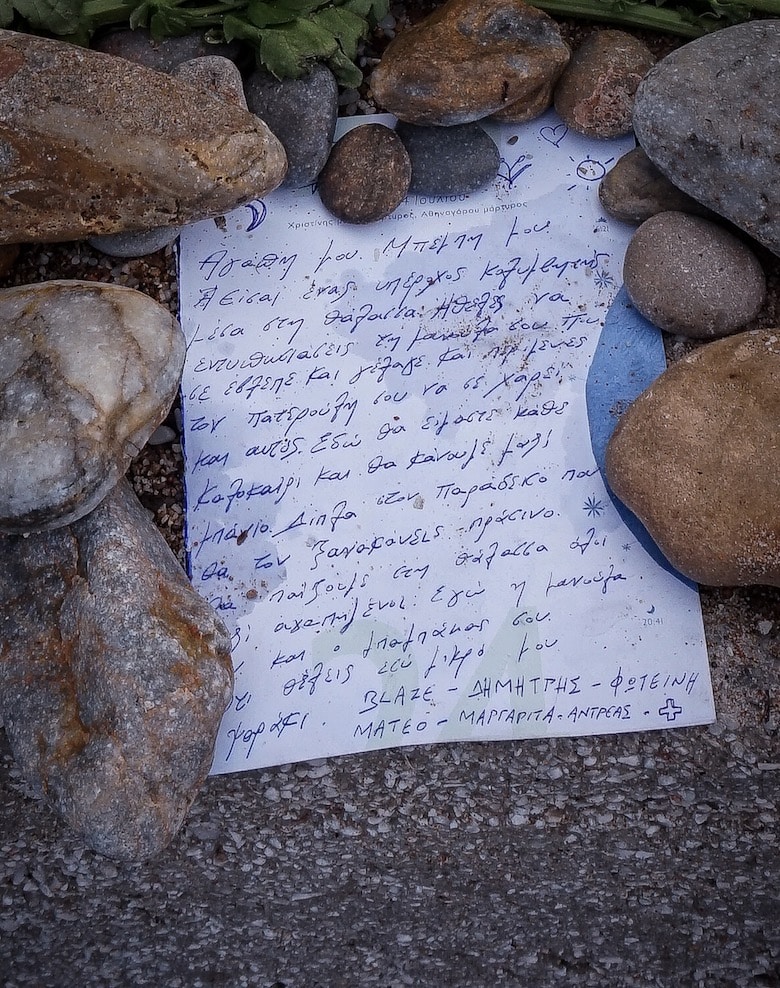 Ιουλίου
Χριστίνης μάρτυρος, Αθηναγόρου μάρτυρος
Αγάπη μου. Μπέμπη μου.
Είσαι ένας υπέροχος κολυμβητής
μέσα στη θάλασσα. Ήθελες να
εντυπωσιάσεις τη μανούλα σου που
σε έβλεπε και γέλαγε και
τον πατερούλη σου να σε χαρεί
και αυτός. Εδώ θα είμαστε κάθε
καλοκαίρι και θα κάνουμε μαζί
μπάνιο. Δίπλα στον παράδεισο που
θα τον ξανακάνεις πράσινο.
θα παίξουμε στη θάλασσα όλοι
αγαπημένοι. Εγώ η μανούλα
και ο μπαμπάκας σου.
θέλεις εσύ μικρό μου
ψαράκι. BLAZE - ΔΗΜΗΤΡΗΣ - ΦΩΤΕΙΝΗ
ΜΑΤΕΟ - ΜΑΡΓΑΡΙΤΑ - ΑΝΤΡΕΑΣ.
20:41